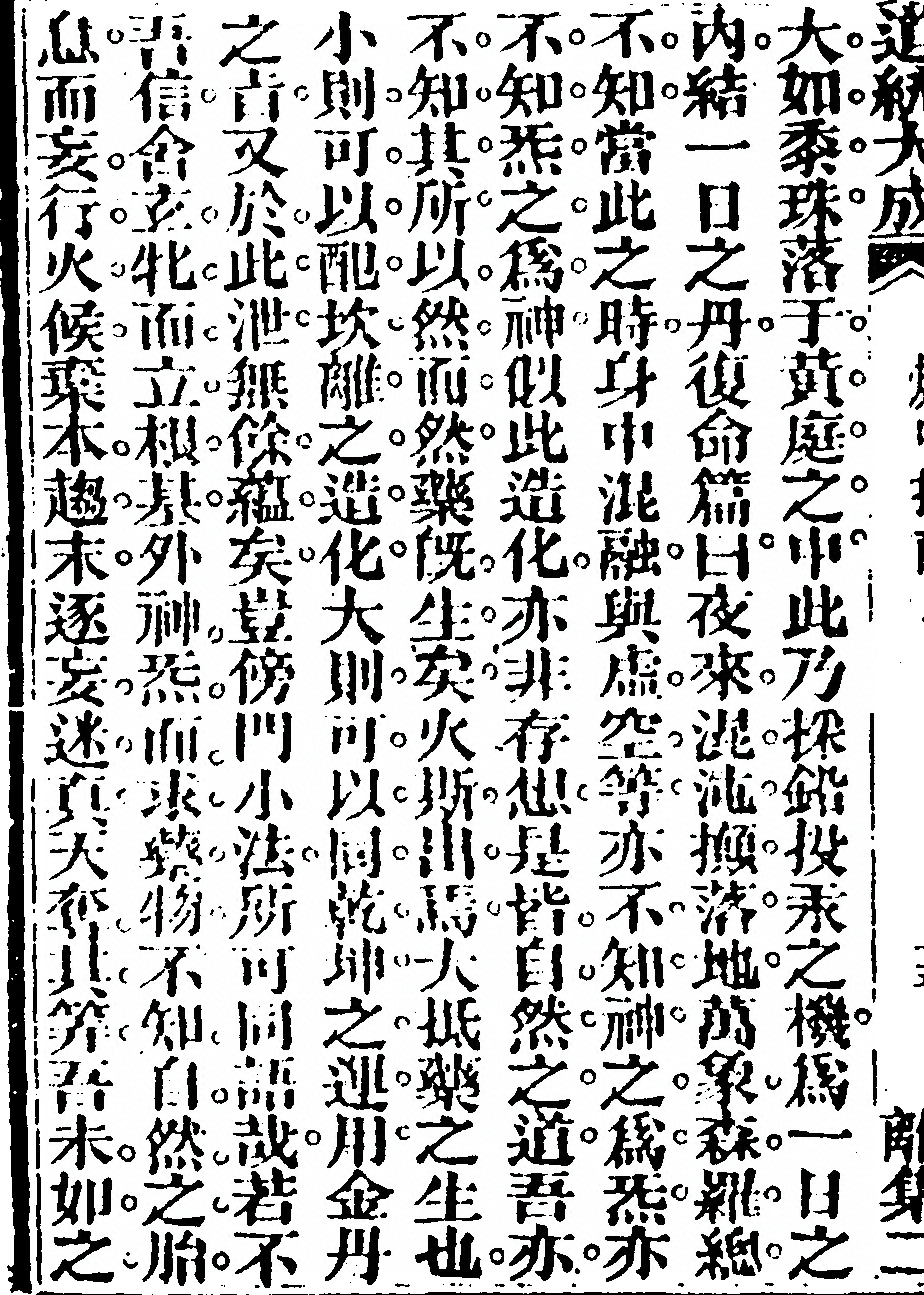 道統大成 離集二
大如黍珠落于黃庭之中此乃採鉛投汞之機爲一日之
內結一日之丹復命篇曰夜來混沌攧落地萬象森羅總
不知當此之時身中混融與虛空等亦不知神之爲炁亦
不知炁之爲神似此造化亦非存想是皆自然之道吾亦
不知其所以然而然藥旣生矣火斯出焉大抵藥之生也
小則可以配坎離之造化大則可以同乾坤之運用金丹
之㫖又於此泄無餘蘊矣豈傍門小法所可同語哉若不
吾信舍玄牝而立根基外神炁而求藥物不知自然之胎
息而妄行火候棄本趨末逐妄迷眞天奪其筭吾未如之